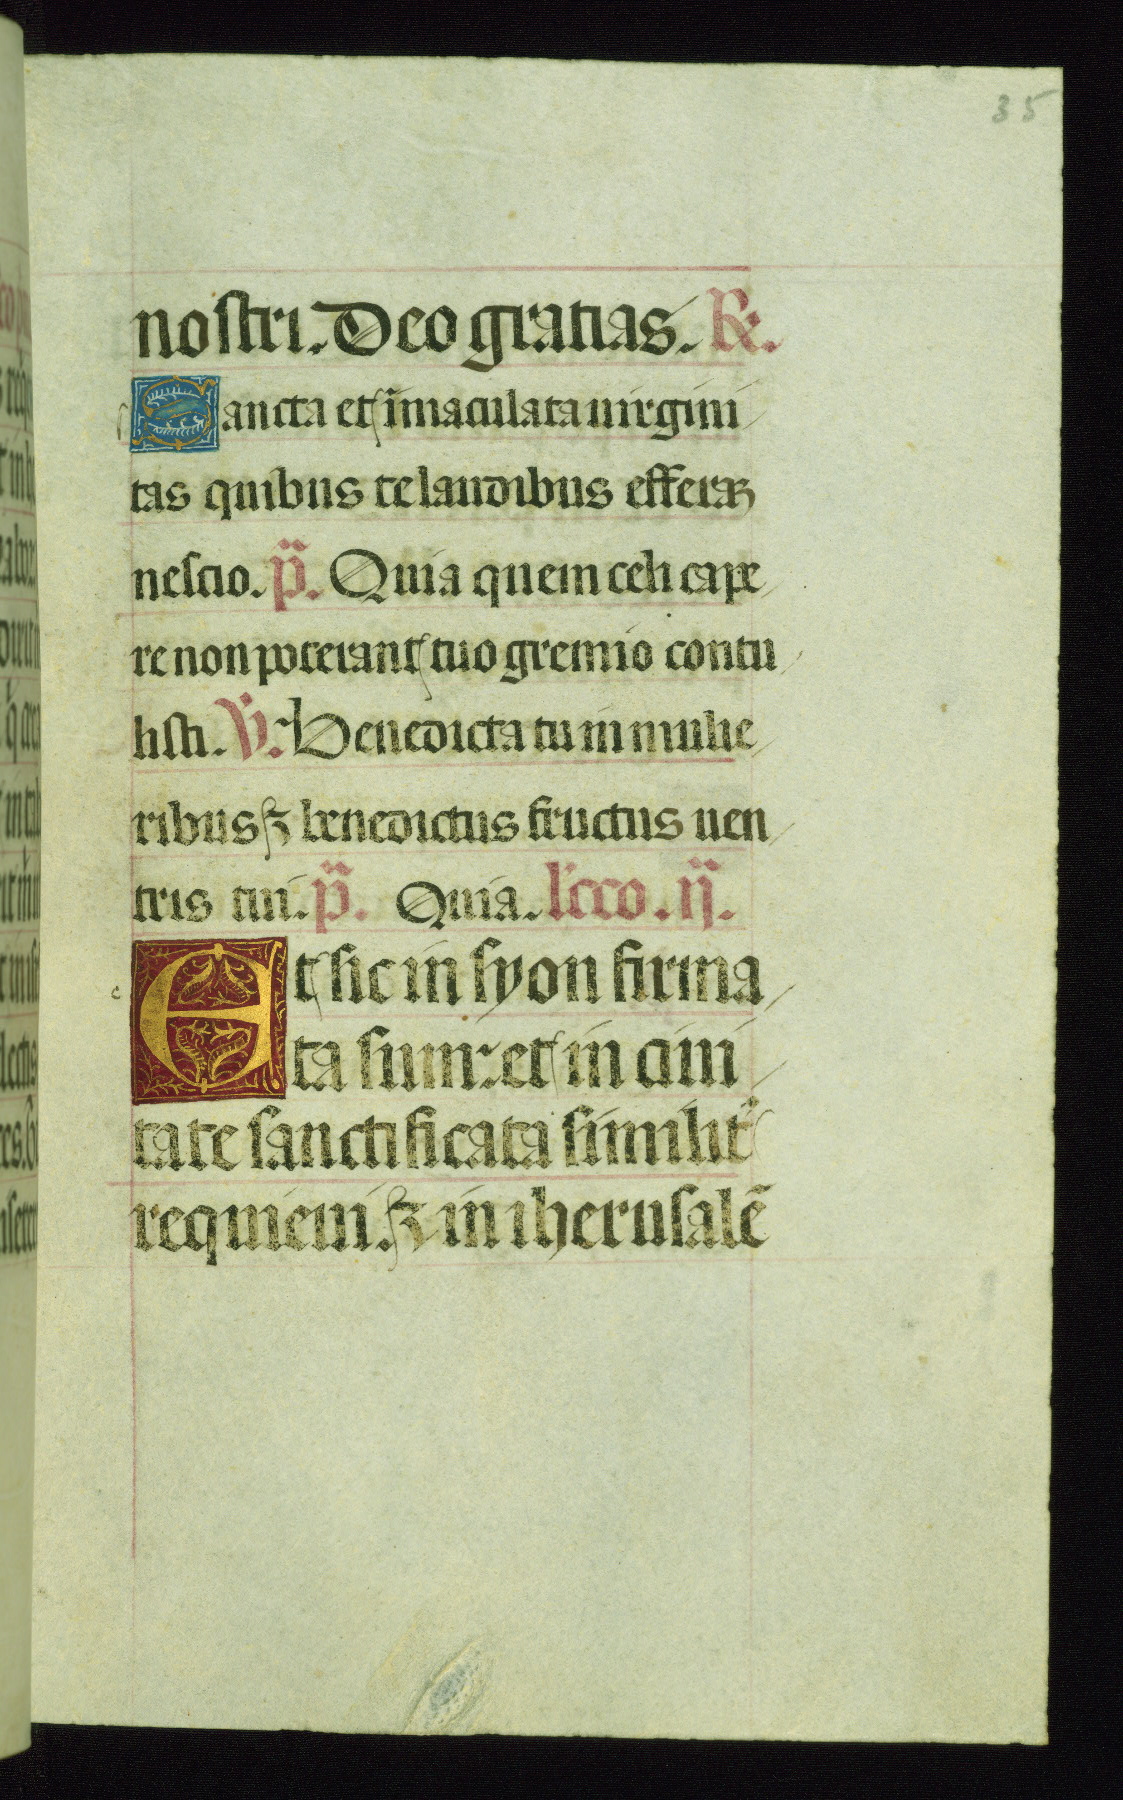 35
nostri. Deo gratias. ℟.
Sancta et īmaculata uirgini
tas quibus te laudibus efferaꝫ
nescio. p̈. Quia quem celi cape
re non poterant tuo gremio contu
listi. ℣. Benedicta tu in mulie
ribus ⁊ benedictus fructus uen
tris tui. p̈. Quia. lc̄co. ij.
Et sic in syon firma
ta sum: et in ciui
tate sanctificata similit᷑
requieui. ⁊ in iherusalē